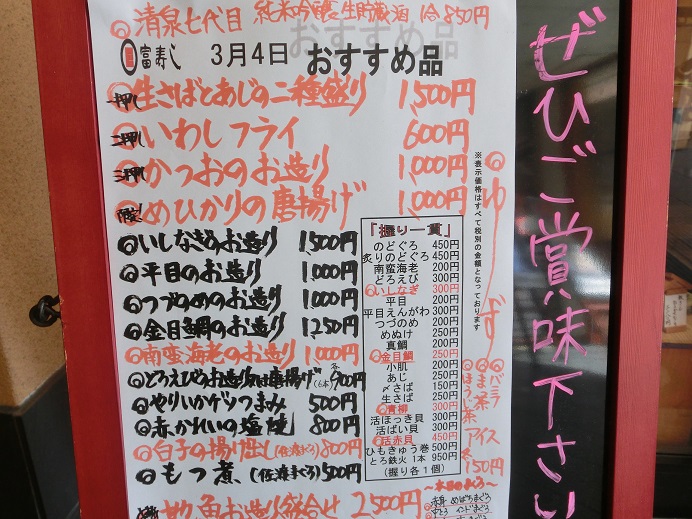 清泉七代目 純米吟醸生貯蔵酒 1合850円
富寿し 3月4日 おすすめ品
一押し 生さばとあじの二種盛り 1,500円
二押し いわしフライ 600円
三押し かつおのお造り 1,000円
めひかりの唐揚げ 1,000円
いしなぎのお造り 1,500円
平目のお造り 1,000円
つづのめのお造り 1,000円
金目鯛のお造り 1,250円
南蛮海老のお造り 1,000円
どろえびのお造り又は唐揚げ(6本)各900円
やりいかゲソつまみ 500円
赤かれいの塩焼 800円
白子の揚げ出し(佐渡まぐろ)800円
もつ煮(佐渡まぐろ)500円
地魚お造り盛合せ 2,500円
「握り一貫」
のどぐろ 450円
炙りのどぐろ 450円
南蛮海老 200円
どろえび 300円
いしなぎ 300円
平目 200円
平目えんがわ 300円
つづのめ 200円
めぬけ 250円
真鯛 200円
金目鯛 250円
小肌 200円
あじ 250円
〆さば 150円
生さば 250円
青柳 300円
活ほっき貝 300円
活ばい貝 300円
活赤貝 450円
ひもきゅう巻 500円
とろ鉄火 1本 950円
(握り各1個)
※表示価格はすべて税別の金額となっております
ゆず
バニラ
まっ茶
ほうじ茶
アイス
各150円
～本日のまぐろ～
赤身 めばちまぐろ
中とろ インドまぐろ
ぜひご賞味下さい